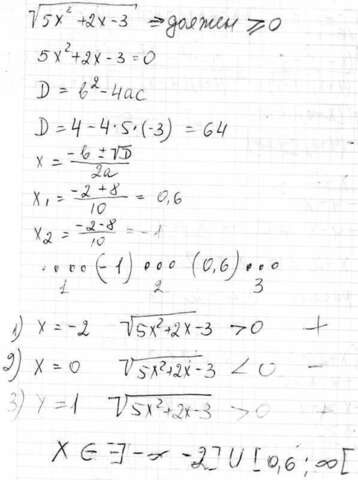 √5x²+2x-3 ⇒ должен ≥ 0
5x²+2x-3=0
D = b²-4ac
D = 4-4·5·(-3) = 64
x = -b ± √D / 2a
x₁ = -2+8 / 10 = 0,6
x₂ = -2-8 / 10 = -1
....(-1) ... (0,6) ...
1 2 3
1) x = -2 √5x²+2x-3 > 0 +
2) x = 0 √5x²+2x-3 < 0 -
3) x = 1 √5x²+2x-3 > 0 +
x ∈ ]-∞ -2] ∪ [0,6; ∞[